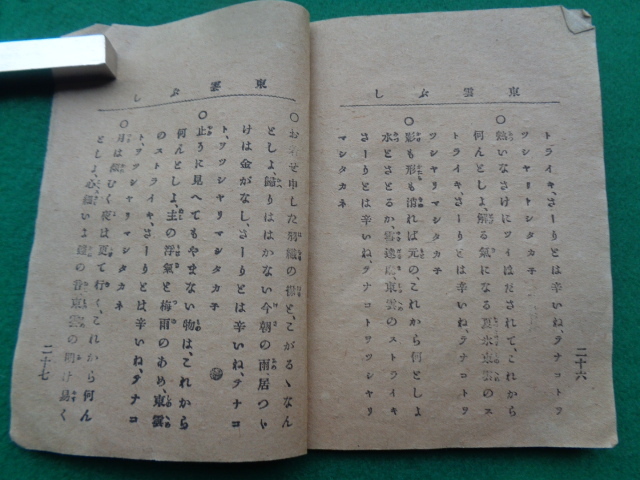 東雲ぶし
トライキ、さーりとは辛いね、テナコトヲ
ツシャートシタカ子
〇熱いなさけにツイほだされて、これから
何んとしよ、解る氣になる夏氷東雲のス
トライキ、さーりとは辛いね、テナコトヲ
ツシャリマシタカ子
〇影も形も潰れば元の、これから何としよ
水とさとるか、東雲のストライキ
さーりとは辛いね、テナコトヲツシャリ
マシタカネ
二十六
東雲ぶし
〇お名せ申した の と、こがるゝなん
としよ、歸りははかない今朝の雨、居つゞ
けは金がなし、さーりとは辛いね、テナコ
ト、ヲツシャリマシタカ子
〇止うに見へてもやまない物は、これから
何んとしよ、主の浮氣と梅雨のあめ、東雲
のストライキ、さーりとは辛いね、テナコ
ト、ヲツシャリマシタカネ
〇月は傾むく夜は更て行く、これから何ん
としよ、心細いよ鐘の音東雲の明け易く
二十七